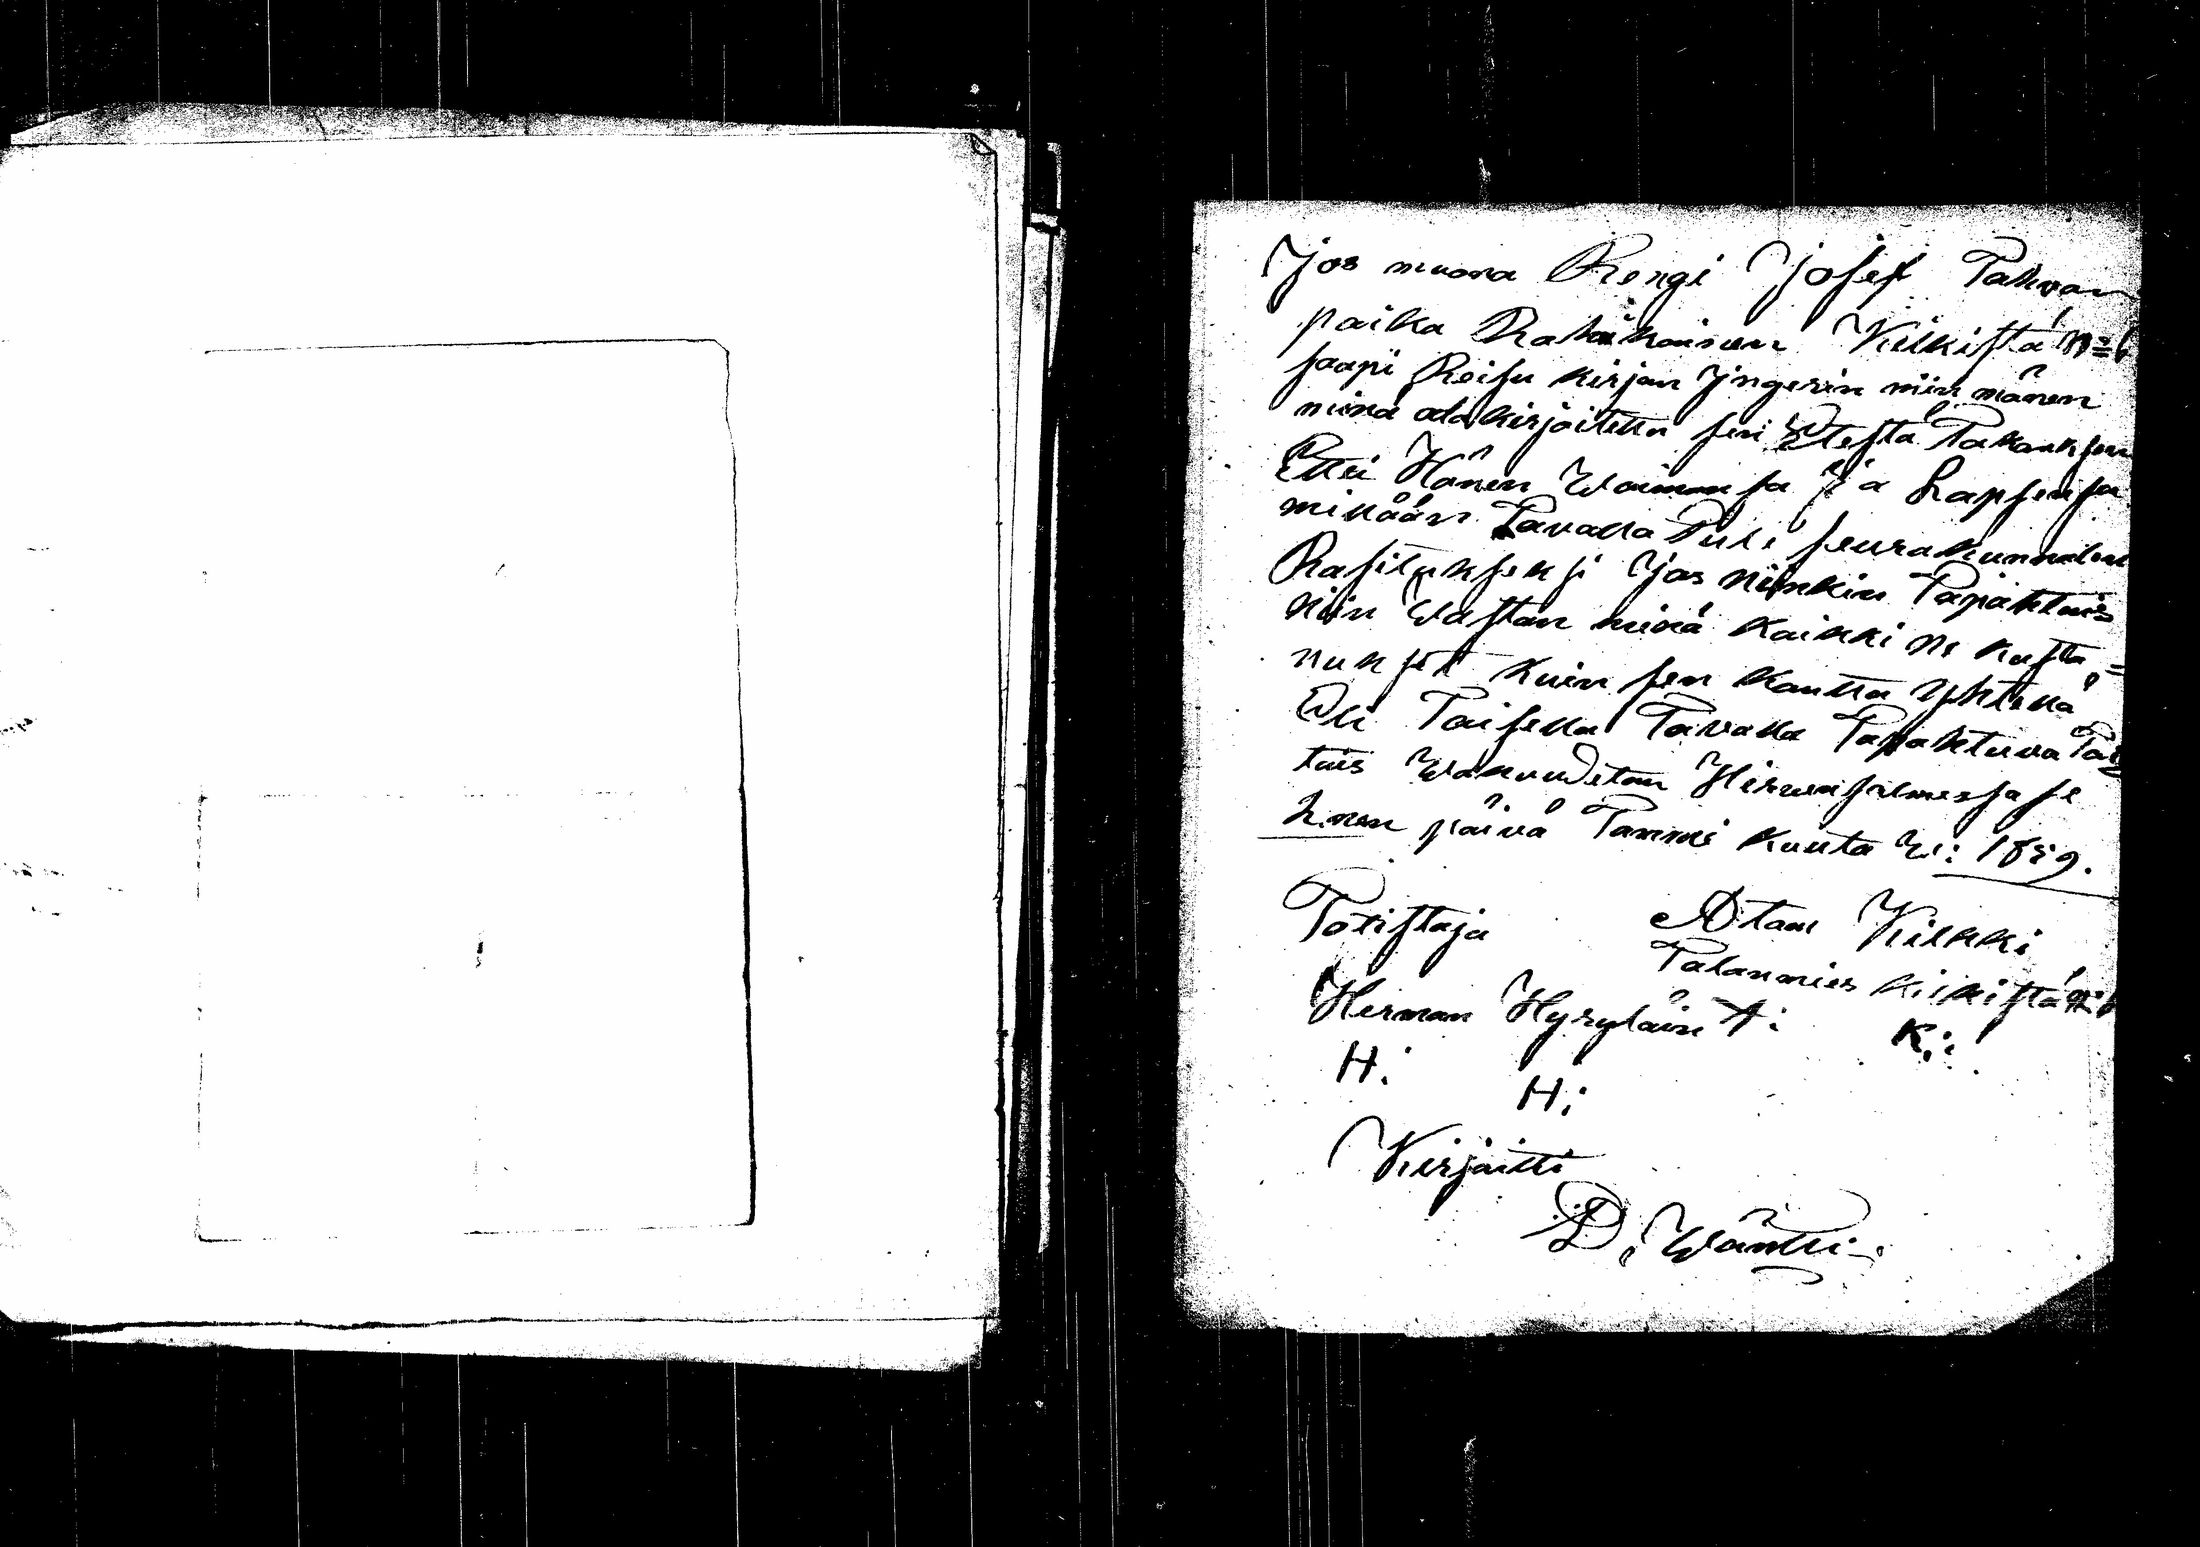 Jos muona Rengi Josef Tahvan
paika Ratikaisen Kilkistä N=6
saapi Reisu kirjan Jngerin niin mänen
minä ala kirjoitettu sen Etestä Takauksen
Ettei Hänen Waimonsa ja Lapsensa
mikään Tavalla Tule seurakunnalen
Rasitukseksi Jos niinkin Tapahtuis
niin Wastan minä kaikki ne kusta,=
nukset kuin sen kautta yhtenä
Eli Toisella Tavalla Tapahtuva Tai
tuis Wakuudetan Hirwensalmessa se
2,nen päivä Tammi kuuta W: 1859.
Totistaja Atam Kilkki
Talanmies Kilkistä N:6
Herman Hyryläin A: K:
H: H:
Kirjoitti
D. Wäntti.